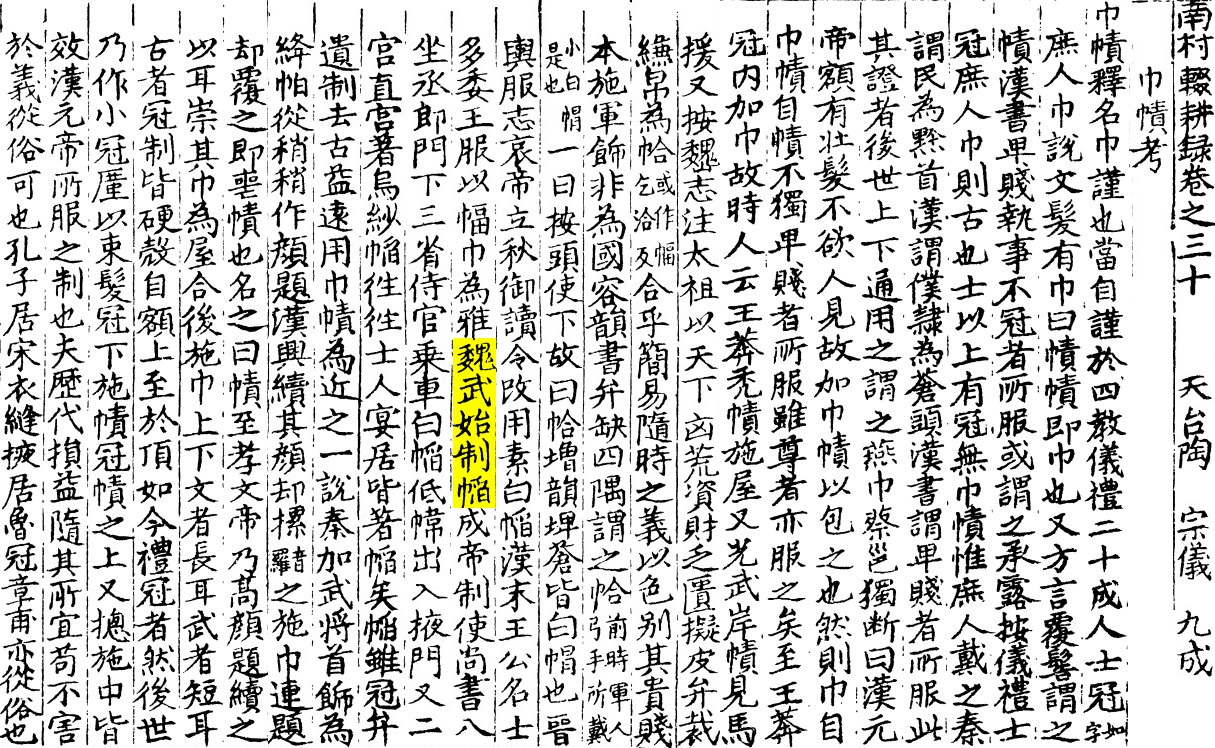 南村輟耕録卷之三十　天台陶　宗儀　九成
巾幘考
巾幘釋名巾謹也當自謹於四教儀禮二十成人士冠如字
庶人巾説文髮有巾曰幘幘即巾也又方言覆髻謂之
幘漢書卑賤執事不冠者所服或謂之承露按儀禮士
冠庶人巾則古也士以上有冠無巾幘惟庶人戴之秦
謂民為黔首漢謂僕隸為蒼頭漢書謂卑賤者所服此
其證者後世上下通用之謂之燕巾蔡邕獨断曰漢元
帝額有壮髮不欲人見故加巾幘以包之也然則巾自
巾幘自幘不獨卑賤者所服雖尊者亦服之矣至王莽
冠内加巾故時人云王莽禿幘施屋又光武岸幘見馬
援又按魏志注太祖以天下凶荒資財乏匱擬皮弁裁
縑帛為帢或作㡊乞洽反合乎簡易隨時之義以色别其貴賤
本施軍飾非為國容韻書弁缺四隅謂之帢前時軍人弓手所戴
小白帽是也一曰按頭使下故曰帢増韻埤蒼皆曰帽也晉
輿服志哀帝立秋御讀令改用素白㡊漢末王公名士
多委王服以幅巾為雅魏武始制㡊成帝制使尚書八
坐丞郎門下三省侍官乘車白㡊低幃出入掖門又二
宫直宫著烏紗㡊徃徃士人宴居皆著㡊矣㡊雖冠弁
遺制去古益遠用巾幘為近之一説秦加武將首飾為
絳帕從稍稍作顔題漢興續其顔却摞音羅之施巾連題
却覆之即喪幘也名之曰幘至孝文帝乃髙顔題續之
以耳崇其巾為屋合後施巾上下文者長耳武者短耳
古者冠制皆硬殼自額上至於頂如今禮冠者然後世
乃作小冠厪以束髮冠下施幘冠幘之上又摠施巾皆
效漢元帝所服之制也夫歴代損益隨其所宜苟不害
於義從俗可也孔子居宋衣縫掖居魯冠章甫亦從俗也